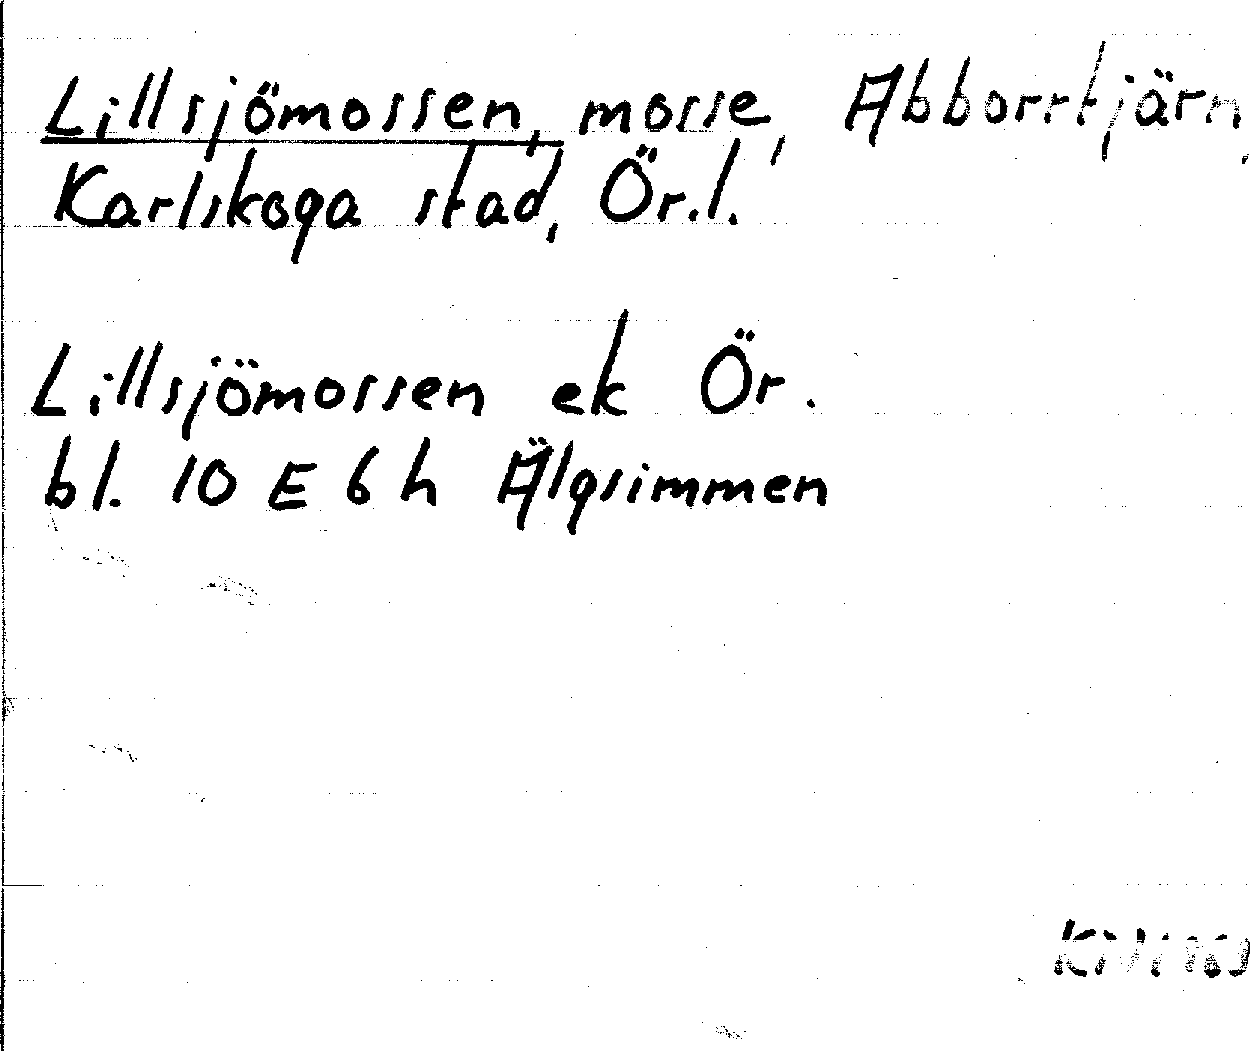 Lillsjömossen, mosse, Abborrtjärn,
Karlskoga stad, Ör.l.
Lillsjömossen ek Ör.
bl. 10 E 6 h Älgsimmen